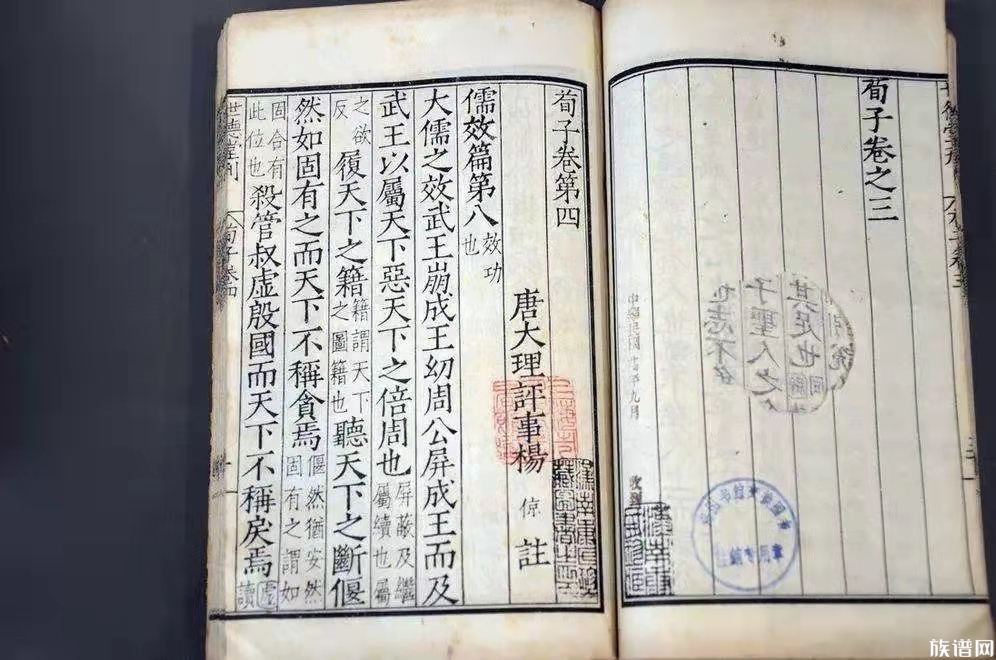 荀子卷之三
中華民國十七年九月
收到
荀子卷第四
唐大理評事楊 倞 註
儒效篇第八 效功也
大儒之效武王崩成王幼周公屏成王而及
武王以屬天下惡天下之倍周也 屏蔽及繼屬續也屬
之欲反 履天下之籍 籍謂天下之圖籍也 聽天下之斷偃
然如固有之而天下不稱貪焉 偃然猶安然固有之謂如
固合有此位也 殺管叔虛殷國而天下不稱戾焉 虛讀
世德堂刊
荀子卷四
族谱网